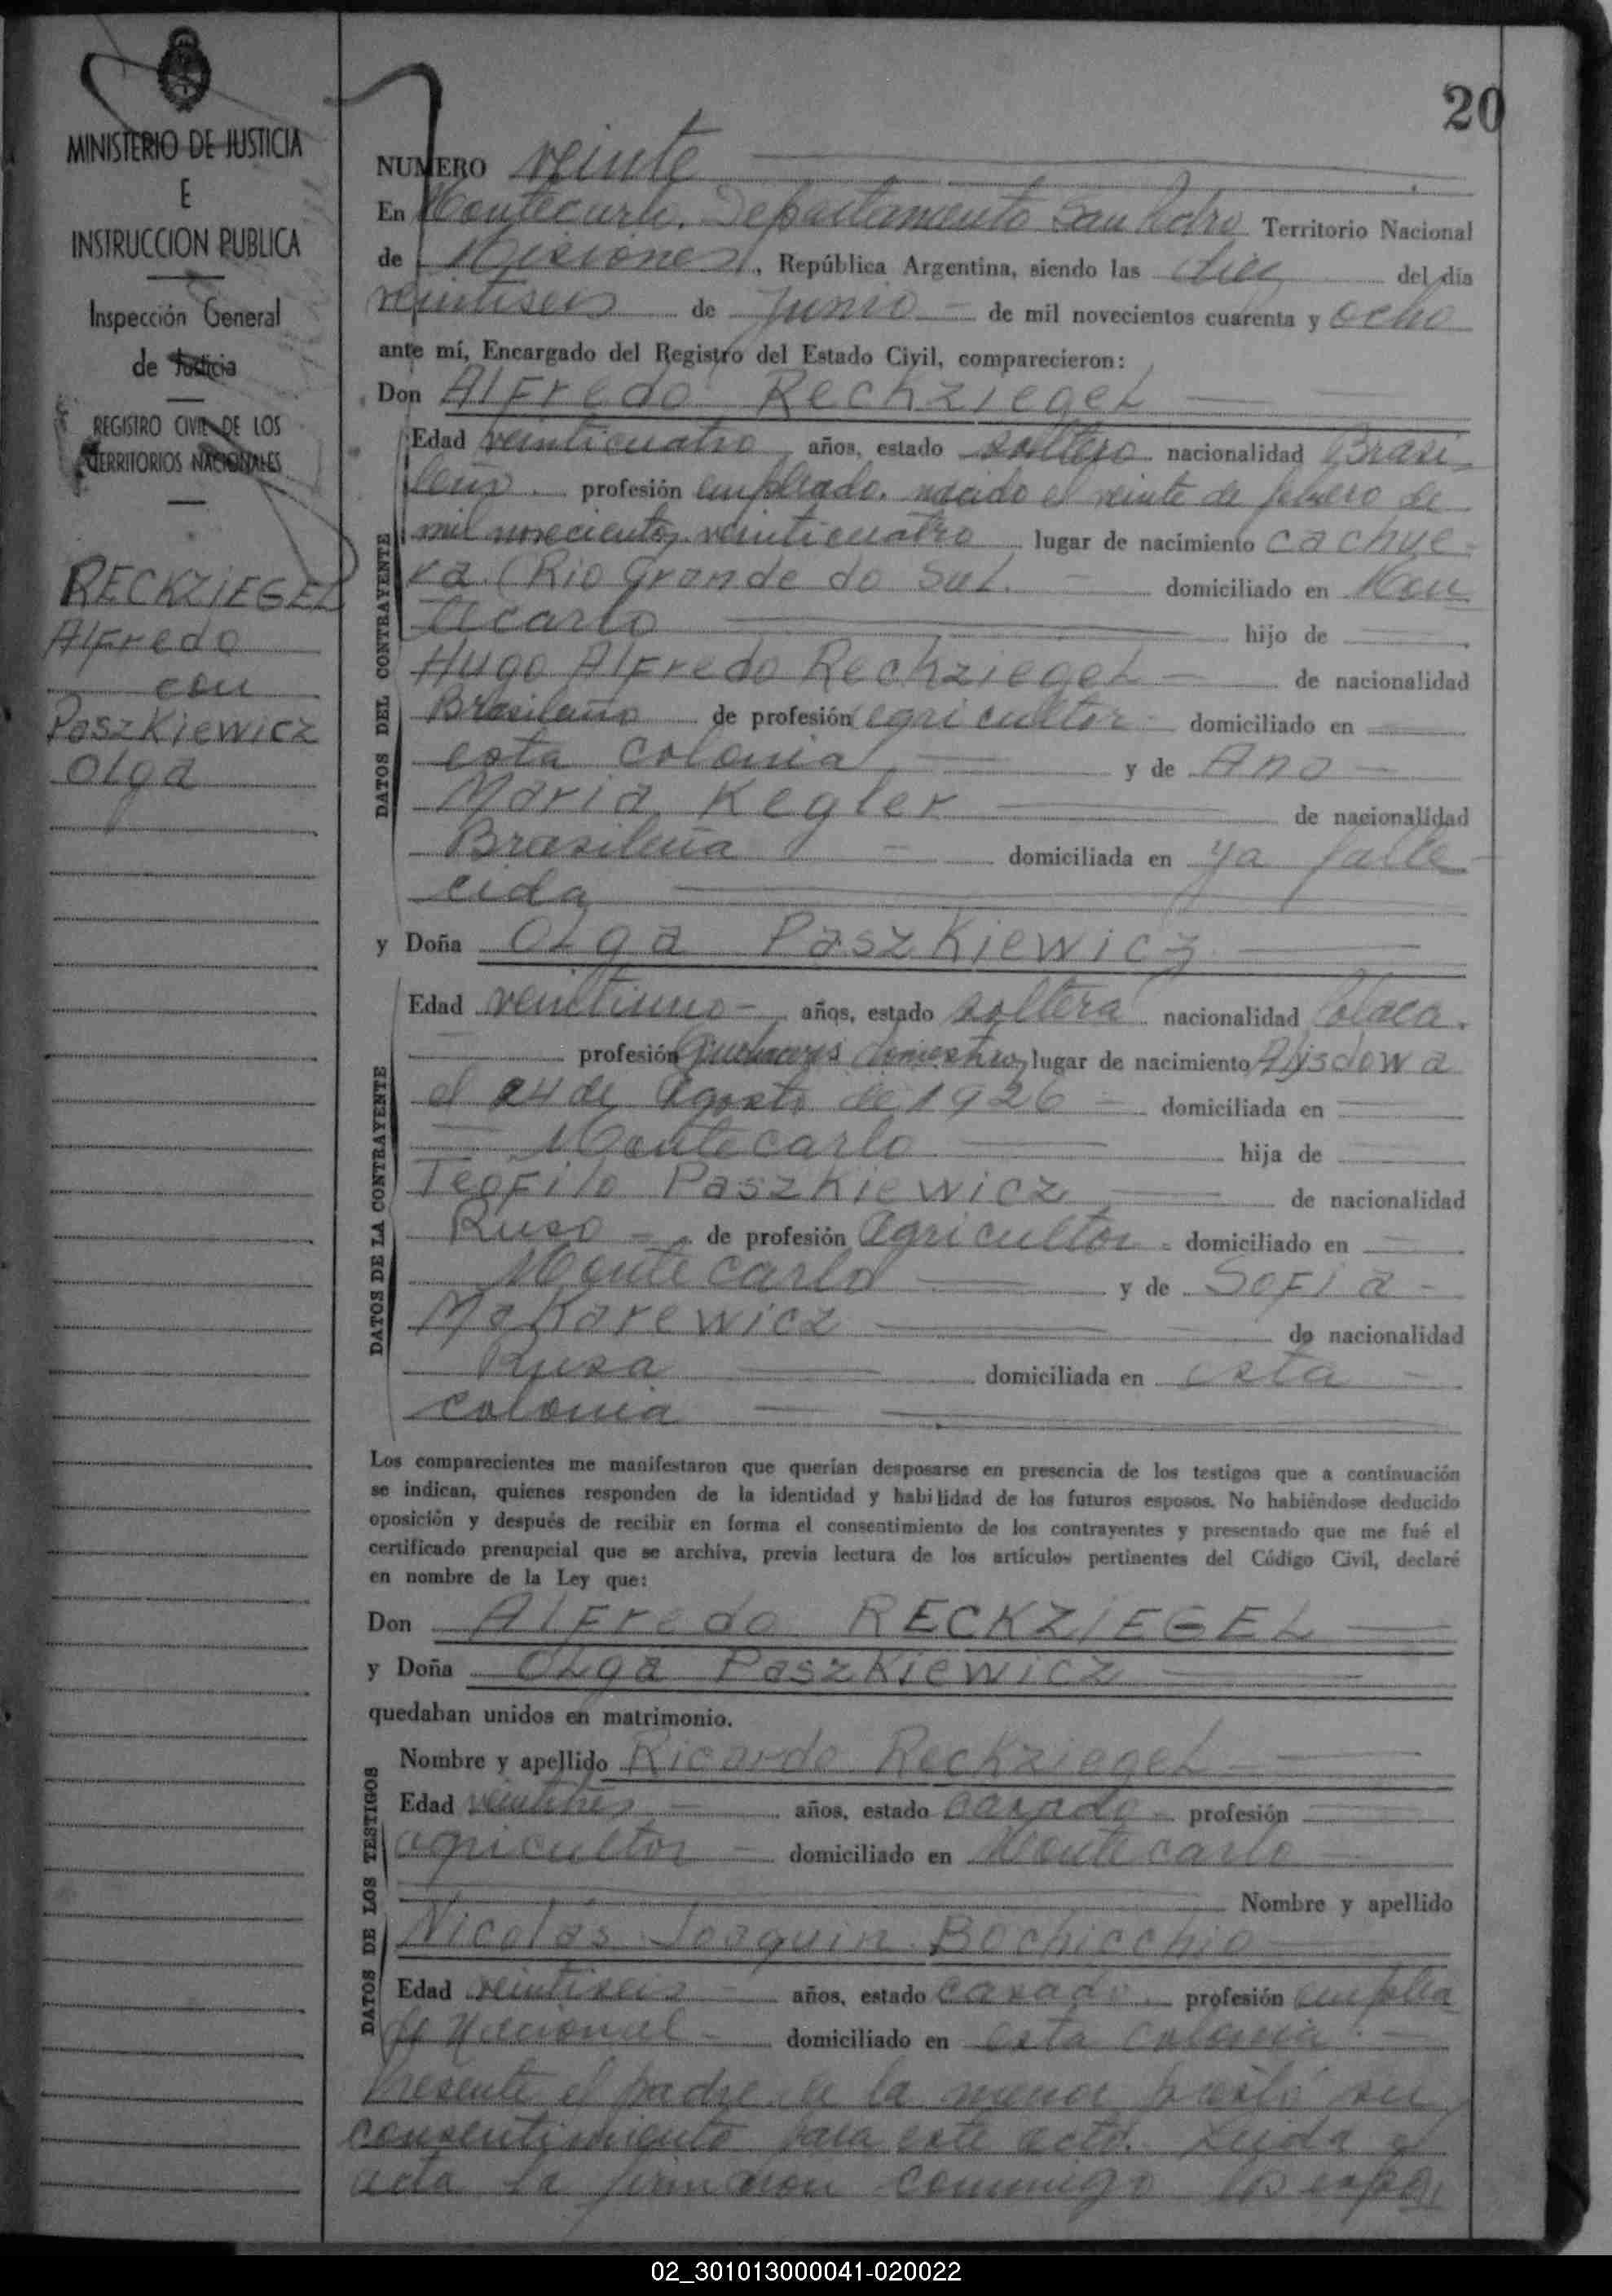 20
MINISTERIO DE JUSTICIA
E
INSTRUCCION PUBLICA
Inspección General
de Justicia
REGISTRO CIVIL DE LOS
TERRITORIOS NACIONALES
RECKZIEGEL
Alfredo
con
Paszkiewicz
Olga
NUMERO veinte
En Montecarlo, Departamento San Pedro Territorio Nacional
de Misiones, República Argentina, siendo las diez del día
veintiseis de Junio de mil novecientos cuarenta y ocho
ante mí, Encargado del Registro del Estado Civil, comparecieron:
Don Alfredo Reckziegel
DATOS DEL CONTRAYENTE
Edad veinticuatro años, estado soltero nacionalidad Brasi-
leño. profesión empleado. nacido el veinte de febrero de
mil novecientos veinticuatro lugar de nacimiento Cachue-
ra (Rio Grande do Sul. domiciliado en Mon
tecarlo hijo de
Hugo Alfredo Reckziegel de nacionalidad
Brasileño de profesión agricultor domiciliado en
esta colonia y de Ana
Maria Kegler de nacionalidad
Brasileña domiciliada en ya falle-
cida
y Doña Olga Paszkiewicz
DATOS DE LA CONTRAYENTE
Edad veintiuno años, estado soltera nacionalidad Polaca.
profesión domestico, lugar de nacimiento
el 24 de Agosto de 1926 domiciliada en
Montecarlo hija de
Teofilo Paszkiewicz de nacionalidad
Ruso de profesión Agricultor domiciliado en
Montecarlo y de Sofia
Makarewicz de nacionalidad
Rusa domiciliada en esta
colonia
Los comparecientes me manifestaron que querían desposarse en presencia de los testigos que a continuación
se indican, quienes responden de la identidad y habilidad de los futuros esposos. No habiéndose deducido
oposición y después de recibir en forma el consentimiento de los contrayentes y presentado que me fué el
certificado prenupcial que se archiva, previa lectura de los artículos pertinentes del Código Civil, declaré
en nombre de la Ley que:
Don Alfredo RECKZIEGEL
y Doña Olga Paszkiewicz
quedaban unidos en matrimonio.
DATOS DE LOS TESTIGOS
Nombre y apellido Ricardo Reckziegel
Edad veintitres años, estado casado profesión
agricultor domiciliado en Montecarlo
Nombre y apellido
Nicolás Joaquin Bochicchio
Edad veintiseis años, estado casado profesión emplea
do Nacional domiciliado en esta colonia.
Presente el padre de la menor prestó su
consentimiento para este acto. Leida el
acta la firmaron conmigo los espo
02_301013000041-020022